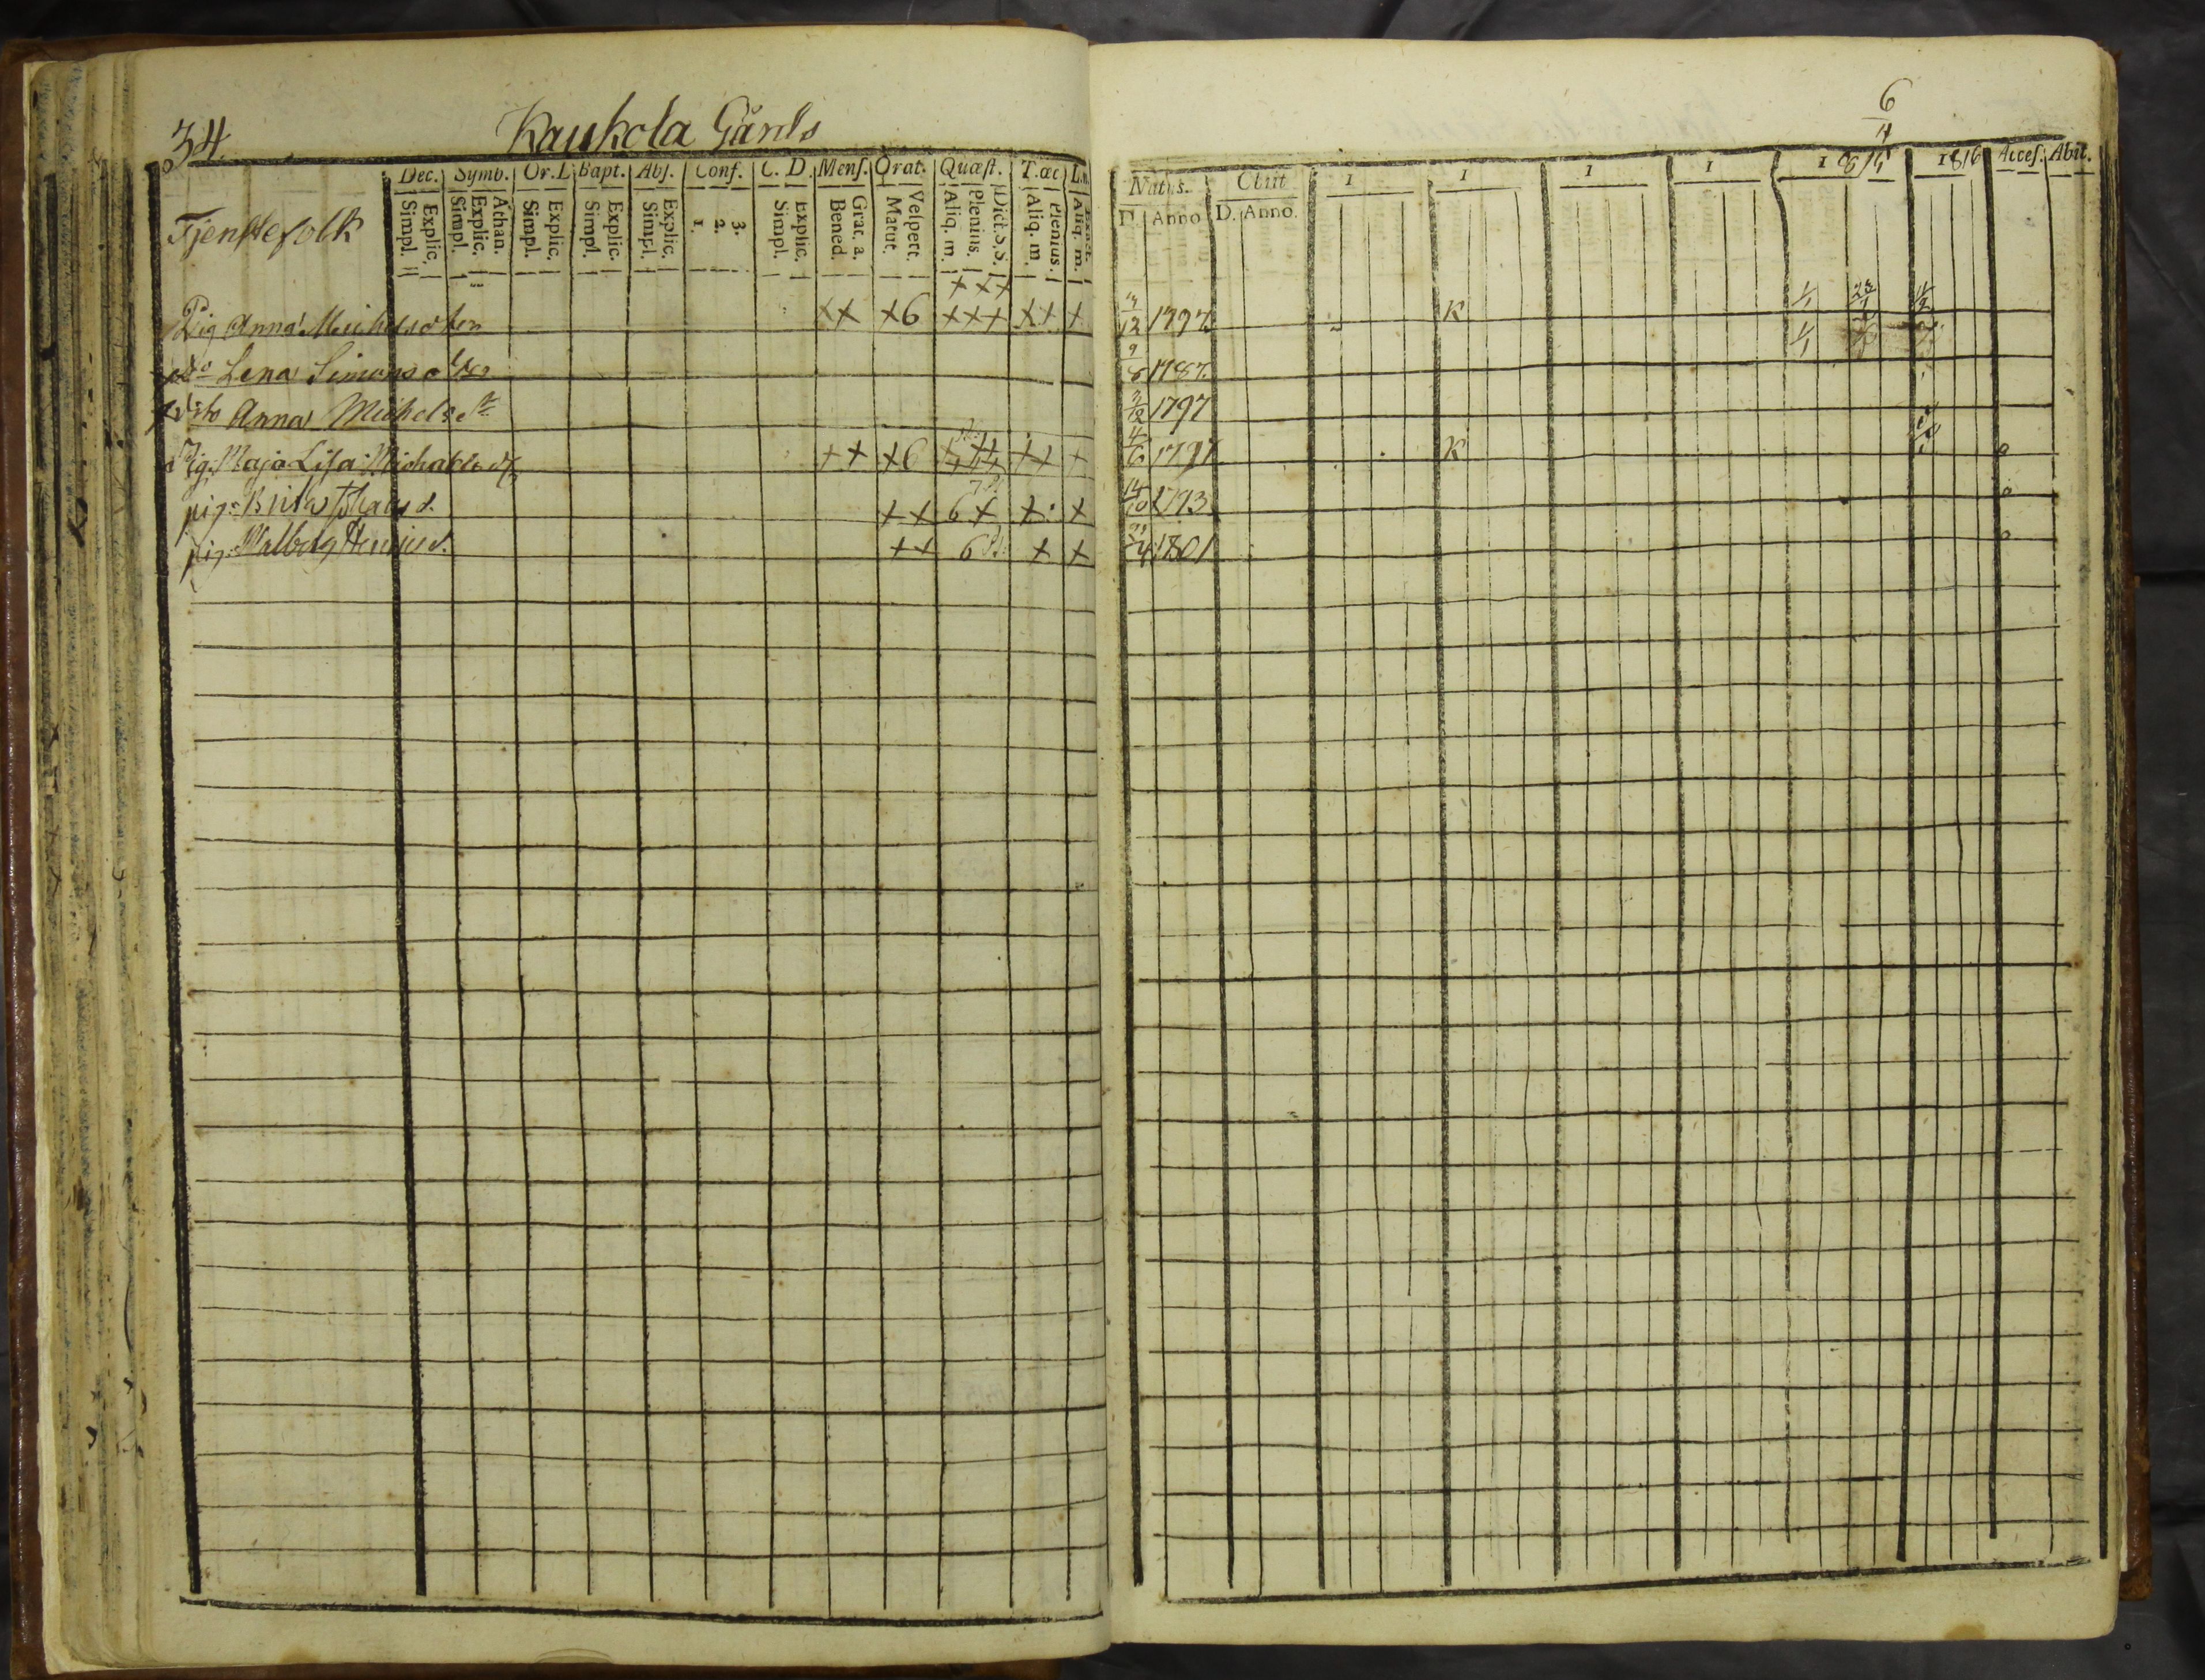 34. Kaukola Gårds
6
4
Dec. Symb. Or.D Bapt. Abs. Conf. C. D. Menſ. Orat. Quæſt. T.œc
Natus. Obiit 1 1 1 1 1815 1816 Acceſ. Abit.
Explic. Simpl. Athan. Explic. Simpl. Explic. Simpl. Explic. Simpl. Explic. Simpl. 3. 2. 1. Explic. Simpl. Grat. a. Bened. Veſpert. Matut. Dict.S.S. Plenius. Aliq. m. Plenius. Aliq. m. Aliq. m.
D. Anno D. Anno.
Tjenstefolk
+ ++
Pig Anna Michelsdotter ++ +6 +++ ++ + 1797 K 1/1
do Lena Simonsdter 9/8 1787 1/1
dito Anna Michelsdr 3/12 1797
Pig. Maja Lisa Michelsdr ++ +6 ++ + 4/6 1797 K
pig. Brita d. ++ 6+ +. + 14/10 1793
pig. Walborg Henricsd. ++ 6 + + 1801